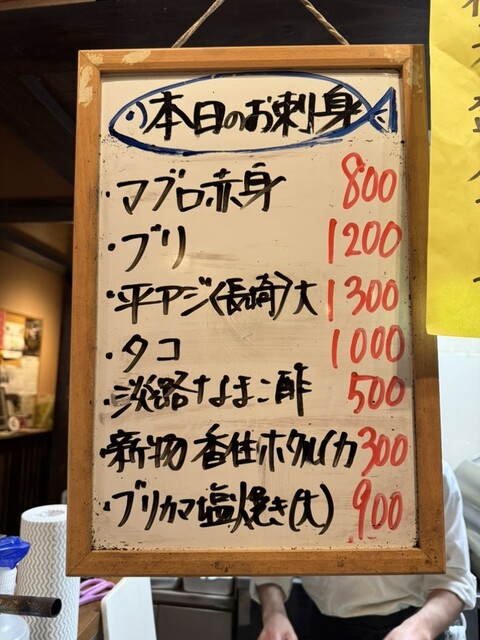 本日のお刺身
・マグロ赤身 800
・ブリ 1200
・平アジ(長崎)大 1300
・タコ 1000
・淡路なまこ酢 500
新物 香住ホタルイカ 300
・ブリカマ塩焼き(大) 900